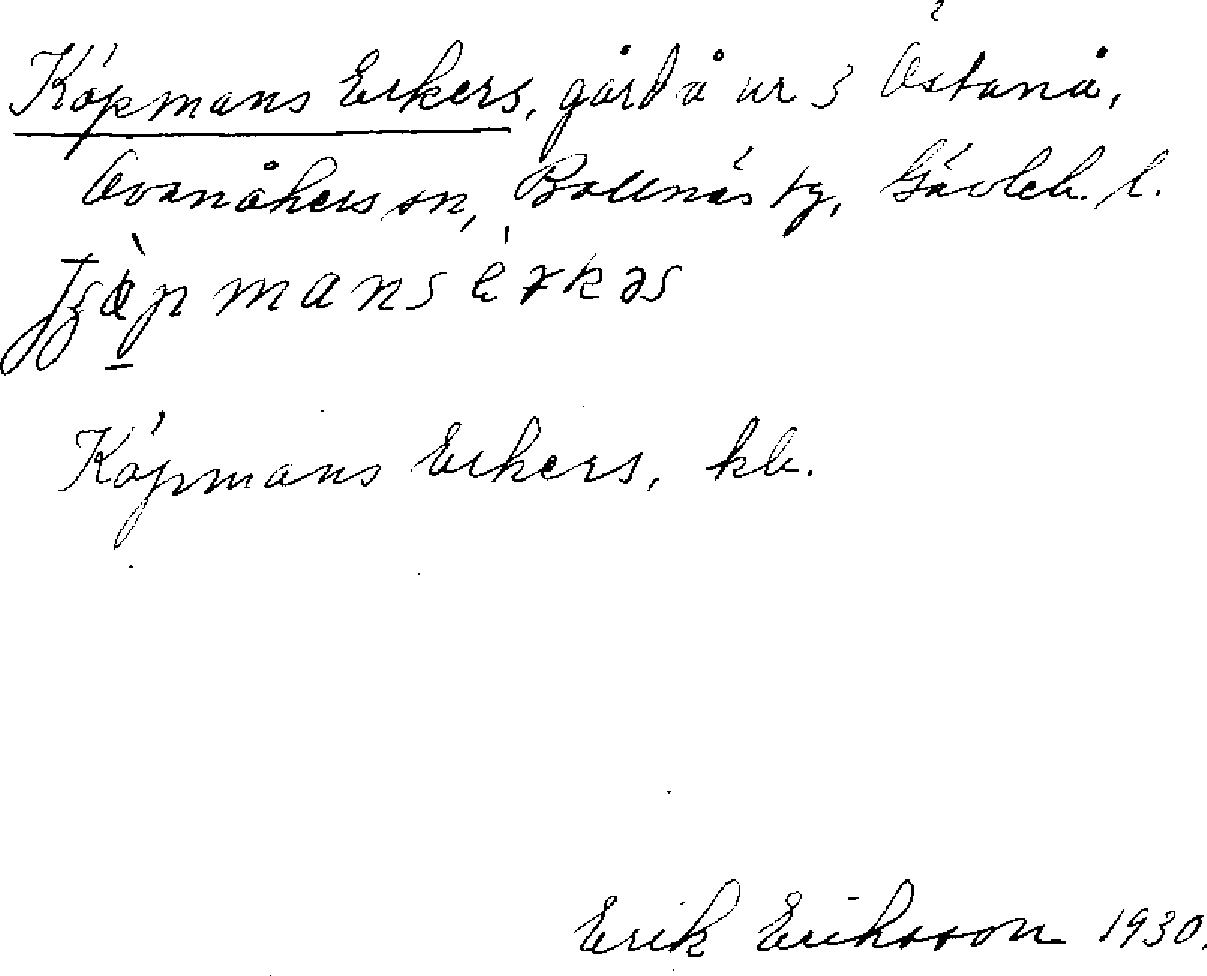 Köpmans Erkers, gård å nr 3 Östanå,
Ovanåkers sn, Bollnäs tg, Gävleb. l.
Köpmans Erkers, kb.
Erik Eriksson 1930.